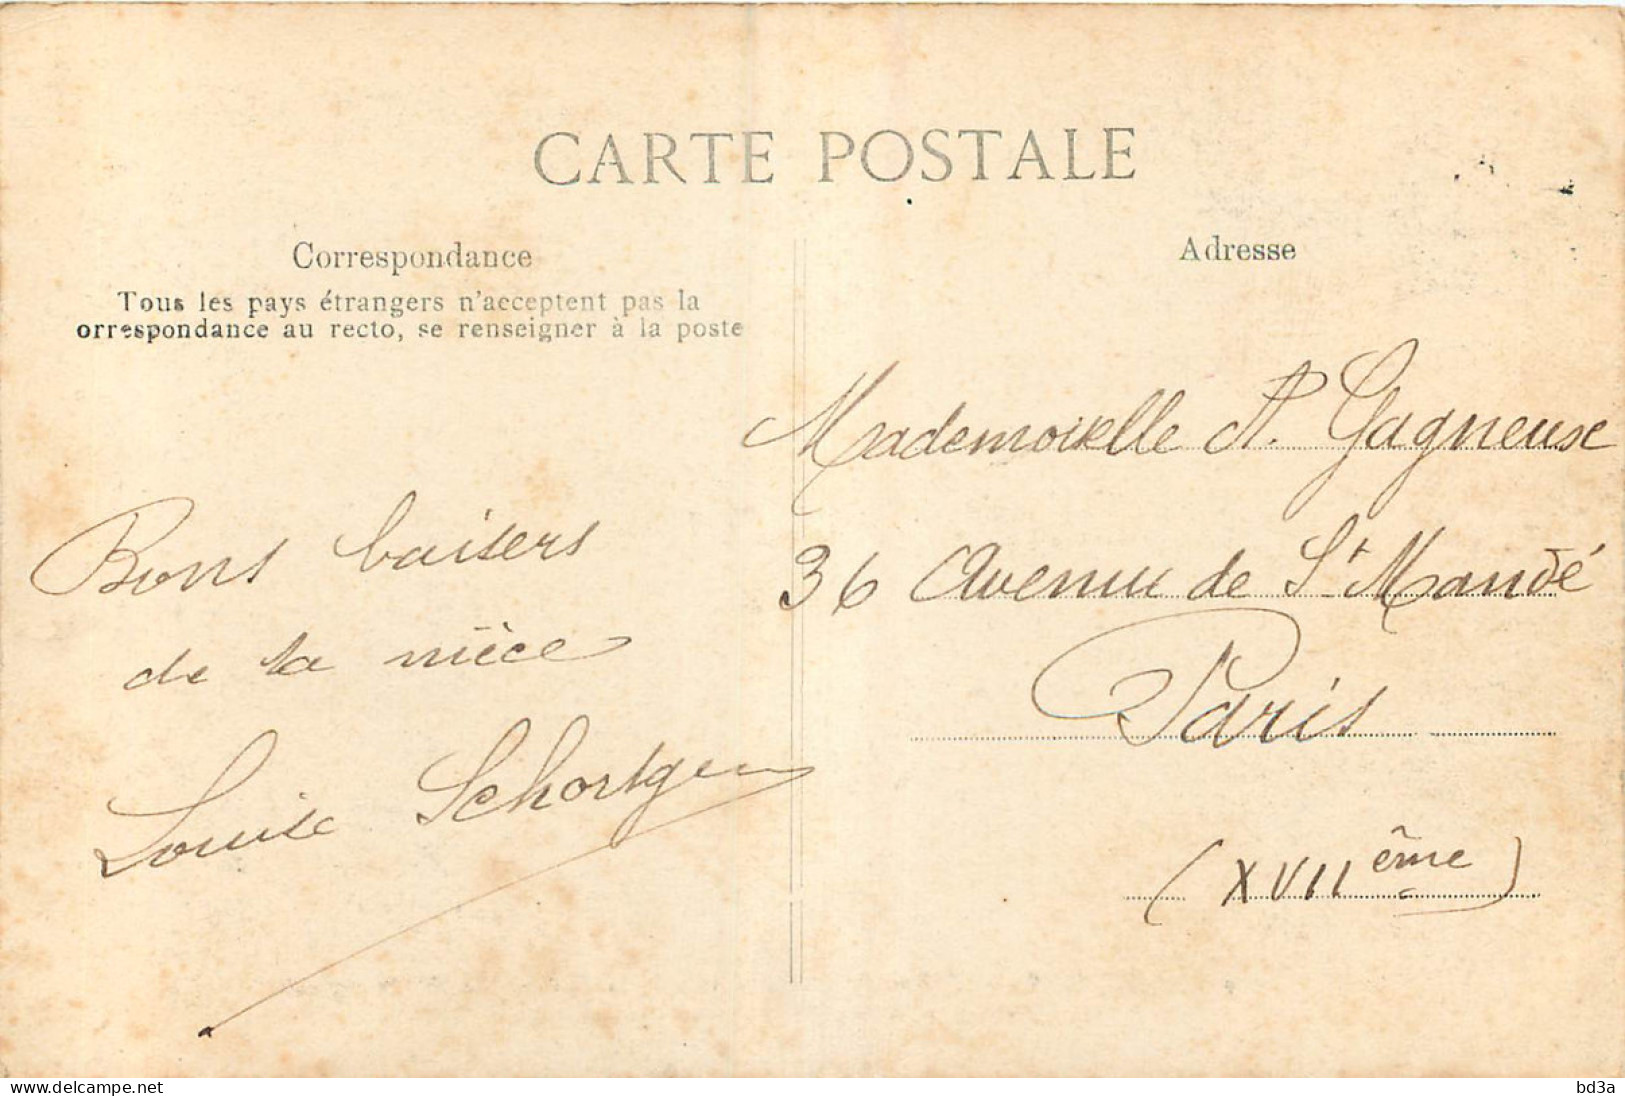 CARTE POSTALE
Correspondance
Tous les pays étrangers n'acceptent pas la
orrespondance au recto, se renseigner à la poste
Bons baisers
de ta nièce
Louise Schortgen
Adresse
Mademoiselle A. Gagneuse
36 Avenue de St Mandé
Paris
(XVIIème)
www.delcampe.net
bd3a